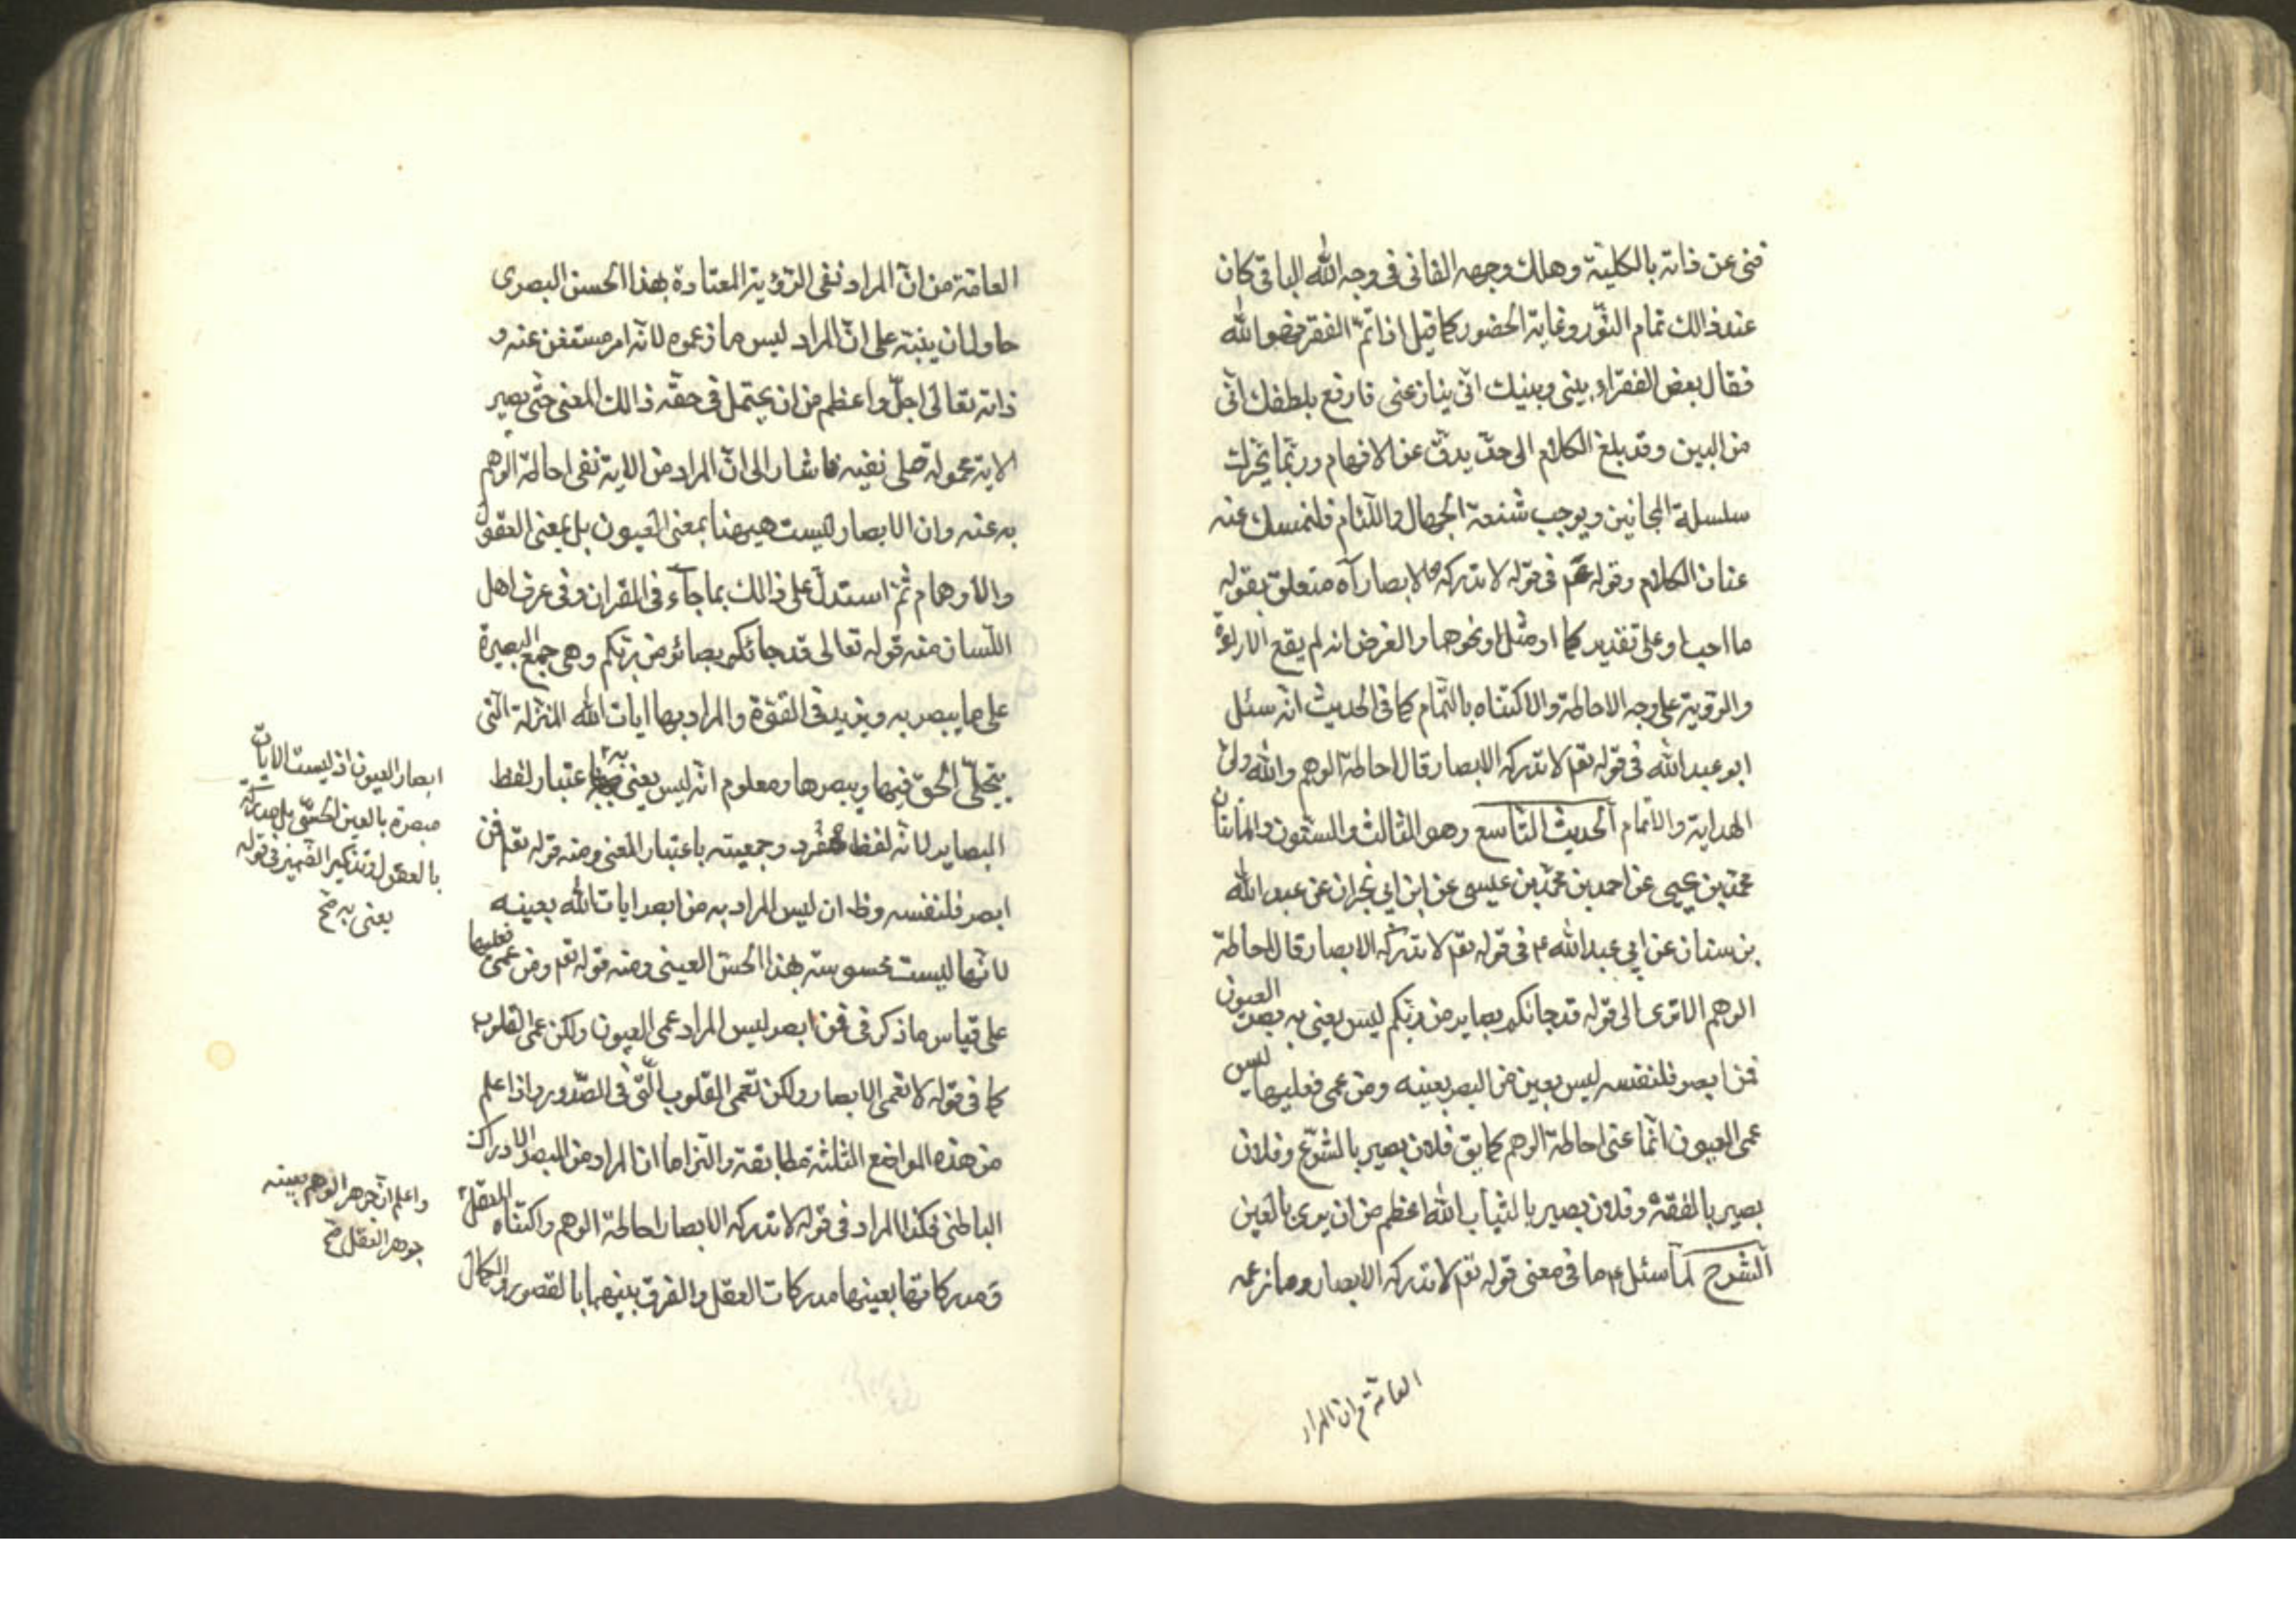 فنى عن ذاته بالكلية وهلك وجهه الفانى فى وجه الله الباقى كان
عند ذالك تمام النور وغاية الحضور كما قيل اذا تم الفقر فهو الله
فقال بعض الفقراء بينى وبينك انى ينازعنى فارفع بلطفك انى
من البين وقد بلغ الكلام الى حد يدق عن الافهام وربما يحرك
سلسلة المجانين ويوجب شنعة الجهال واللئام فلنمسك عنه
عنان الكلام وقوله عم فى قوله لا تدركه الابصار آه متعلق بقوله
ما احب او على تقدير كما او مثل او نحوهما والغرض انه لم يقع الاراءة
والرؤية على وجه الاحاطة والاكتناه بالتمام كما فى الحديث انه سئل
ابو عبد الله فى قوله تعم لا تدركه الابصار قال احاطة الوهم والله ولى
الهداية والاتمام الحديث التاسع وهو الثالث والستون والمأيتان
محمد بن يحيى عن احمد بن محمد بن عيسى عن ابن ابى نجران عن عبد الله
بن سنان عن ابى عبد الله ع فى قوله تعم لا تدركه الابصار قال احاطة
الوهم الا ترى الى قوله قد جائكم بصاير من ربكم ليس يعنى به بصر العيون
فمن ابصر فلنفسه ليس يعين من البصر بعينه ومن عمى فعليها ليس
عمى العيون انما عنى احاطة الوهم كما يق فلان بصير بالشرع وفلان
بصير بالفقه وفلان بصير بالثياب الله اعظم من ان يرى بالعين
الشرح لما سئل ع ما فى معنى قوله تعم لا تدركه الابصار وما زعمه
العامة من ان المراد
العامة من ان المراد نفى الرؤية المعتادة بهذا الحس البصرى
حاول ان ينبه على ان المراد ليس ما زعموه لانه امر مستغن عنه و
ذاته تعالى اجل واعظم من ان يحتمل فى حقه ذالك المعنى حتى يصير
الاية محمولة على نفيه فاشار الى ان المراد من الاية نفى احاطة الوهم
به عنه وان الابصار ليست هيهنا بمعنى العيون بل بمعنى العقول
والاوهام ثم استدل على ذالك بما جاء فى القران وفى عرف اهل
اللسان منه قوله تعالى قد جائكم بصائر من ربكم وهى جمع البصيرة
على ما يبصر به ويزيد فى القوة والمراد بها ايات الله المنزلة التى
يتجلى الحق فيها ويبصرها ومعلوم انه ليس يعنى به اعتبار لفظ
البصاير لانه لفظ مفرد وجمعيته باعتبار المعنى ومنه قوله تعم فمن
ابصر فلنفسه وظ ان ليس المراد به من ابصر ايات الله بعينه
لانها ليست محسوسة بهذا الحس العينى ومنه قوله تعم ومن عمى فعليها
على قياس ما ذكر فى فمن ابصر ليس المراد عمى العيون ولكن عمى القلوب
كما فى قوله لا تعمى الابصار ولكن تعمى القلوب التى فى الصدور واذا علم
من هذه المواضع الثلثة مطابقة والتزاما ان المراد من البصر الادراك
الباطنى فكذا المراد فى قوله لا تدركه الابصار احاطة الوهم واكتناه العقل
ومدركاتها بعينها مدركات العقل والفرق بينهما بالقصور والكمال
ابصار العيون اذ ليست الايات
مبصرة بالعين الحسى بل مدركة
بالعقول وتذكير الضمير فى قوله
يعنى به صح
واعلم ان جوهر الوهم بعينه
جوهر العقل صح